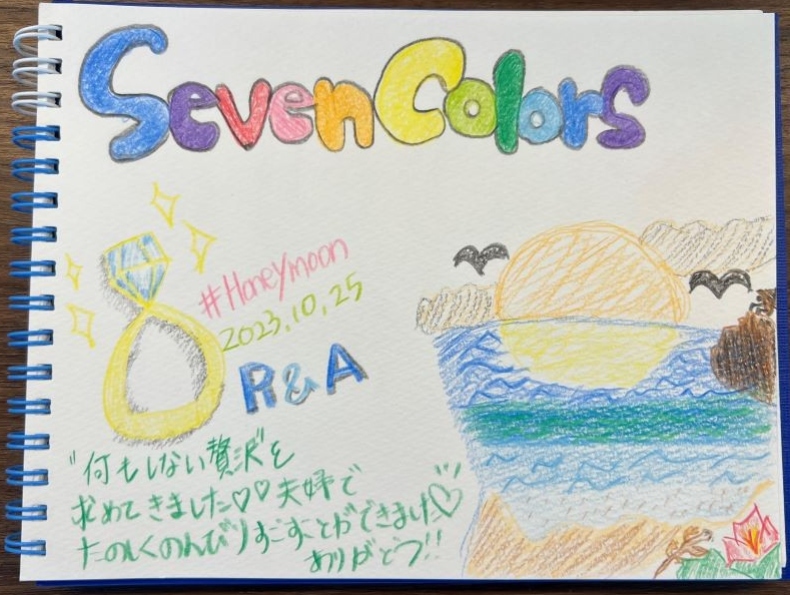 Seven Colors
#Honeymoon
2023.10.25
R&A
"何もしない贅沢"を
求めてきました♡♡夫婦で
たのしくのんびりすごすことができました♡
ありがとう!!